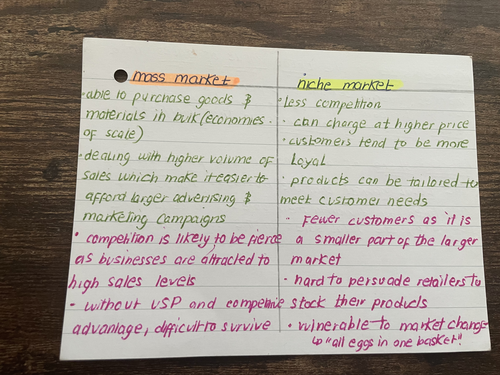 mass market
·able to purchase goods &
materials in bulk (economies
of scale)
·dealing with higher volume of
sales which make it easier to
afford larger advertising &
marketing campaigns
· competition is likely to be fierce
as businesses are attracted to
high sales levels
· without USP and competitive
advantage, difficult to survive
niche market
·less competition
· can charge at higher price
·customers tend to be more
loyal
· products can be tailored to
meet customer needs
· fewer customers as it is
a smaller part of the larger
market
· hard to persuade retailers to
stock their products
· vulnerable to market change
↳ "all eggs in one basket"